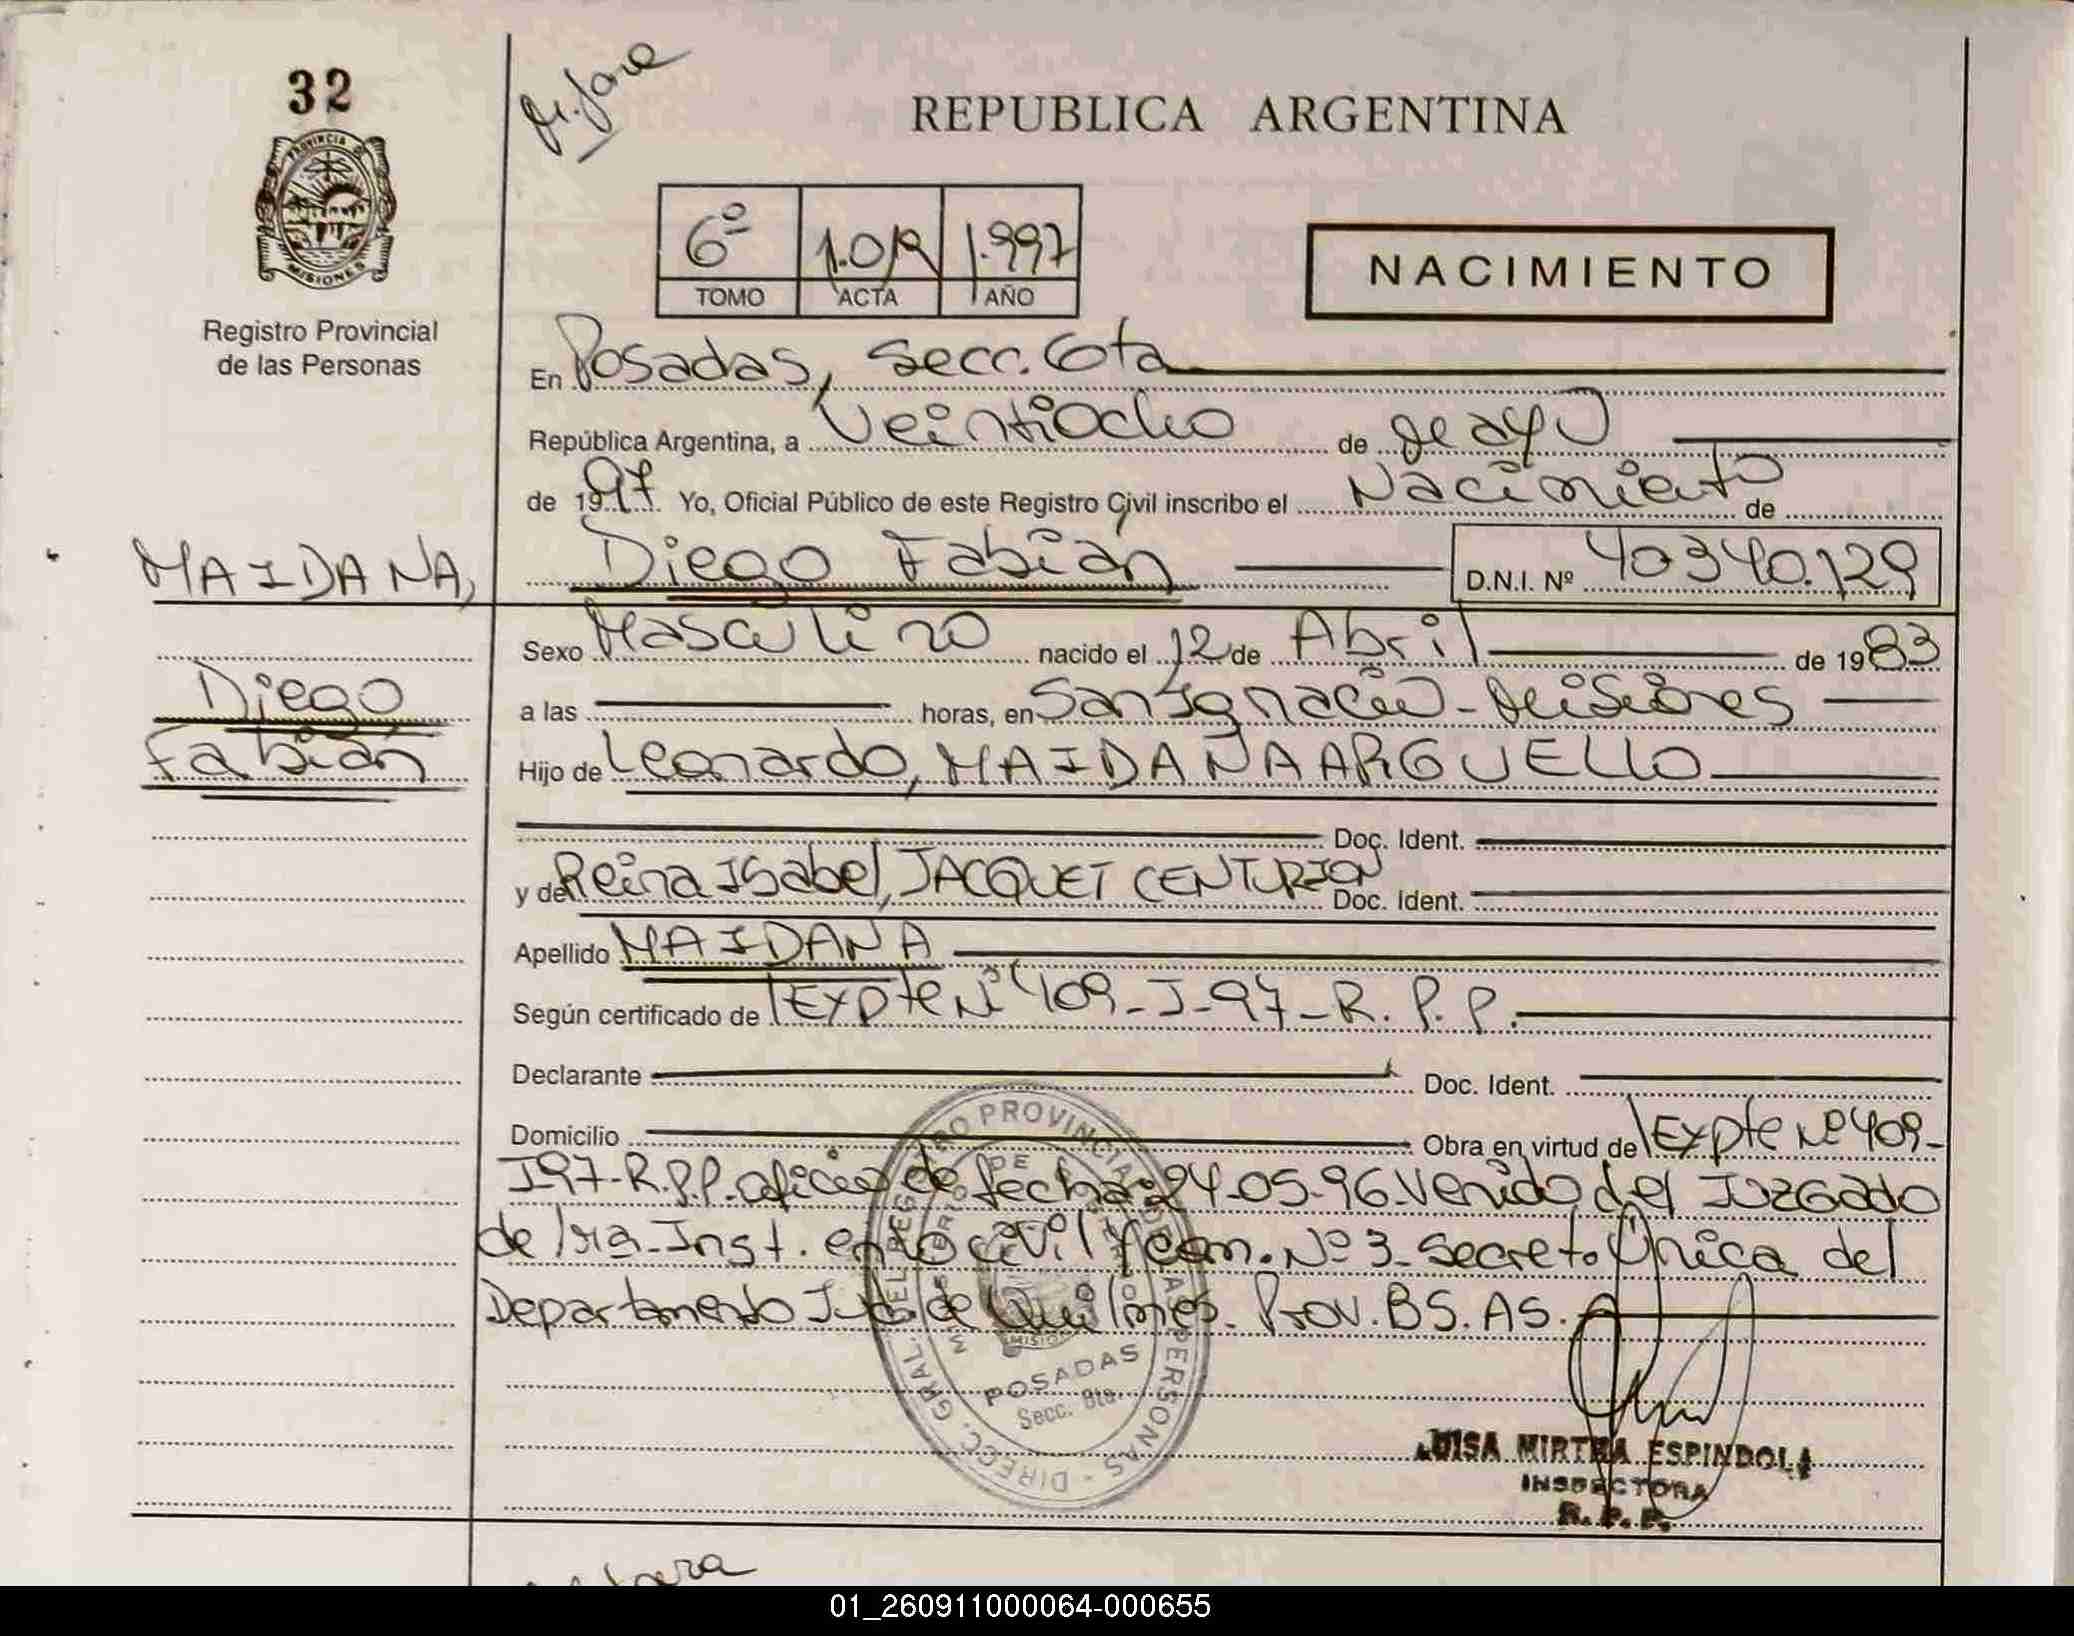 32
PROVINCIA DE
MISIONES
Registro Provincial
de las Personas
REPUBLICA ARGENTINA
6º 1.019 1.997
TOMO ACTA AÑO
NACIMIENTO
En Posadas, Secc. 6ta
República Argentina, a Veintiocho de Mayo
de 1997 Yo, Oficial Público de este Registro Civil inscribo el Nacimiento de
MAIDANA, Diego Fabián D.N.I. Nº 40340.129
Sexo Masculino nacido el 12 de Abril de 1983
Diego
a las horas, en San Ignacio - Misiones
Fabián
Hijo de Leonardo, MAIDANA ARGUELLO
Doc. Ident.
y de Reina Isabel, JACQUET CENTURION Doc. Ident.
Apellido MAIDANA
Según certificado de Expte Nº 409-J-97-R.P.P.
Declarante Doc. Ident.
Domicilio Obra en virtud de Expte Nº 409-
J97-R.P.P. oficio de fecha 24-05-96 venido del Juzgado
de 1ra-Inst. en lo civil y com. Nº 3- Secreto Única del
Departamento Jud. de Quilmes. Prov. BS. AS.
DIRECC. GRAL. DEL REGISTRO PROVINCIAL DE LAS PERSONAS
POSADAS
Secc.
LUISA MIRTHA ESPINDOLA
INSPECTORA
R.P.P.
01_260911000064-000655